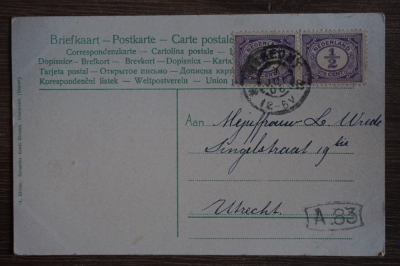 Briefkaart — Postkarte — Carte postale
Correspondenzkarte — Cartolina postale
Dopisnice — Brefkort — Brevkort — Dopisnica — Karta
Tarjeta postal — Открытое письмо — Дописна карта
Korespondenční lístek — Weltpostverein — Union
NEDERLAND NEDERLAND
½
CENT
Aan Mejuffrouw L. Wrede
Singelstraat 19 bis
Utrecht.
A.83